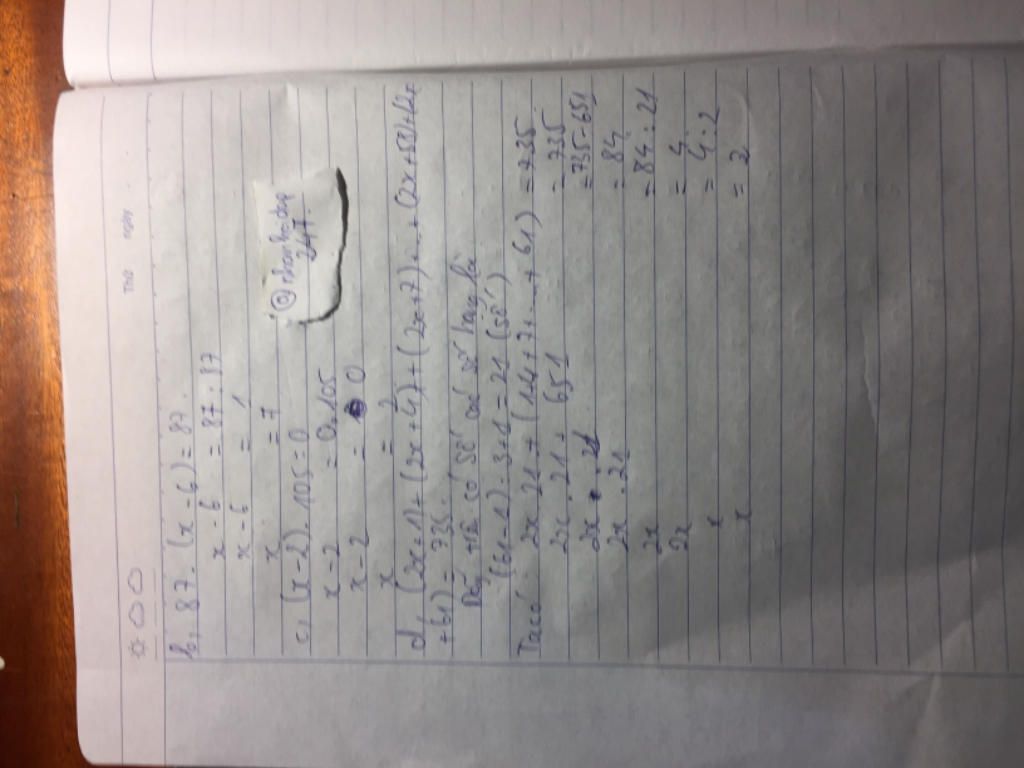 Thứ ngày
b, 87.(x-6)=87.
x-6 = 87:87
x-6 = 1
x = 7
@nhanhodap
247
c, (x-2).105=0
x-2 = 0.105
x-2 = 0
x = 2
d, (2x+1)+(2x+4)+(2x+7)+...+(2x+58)+(2x
+61)= 735.
số số hạng là
(61-1):3+1=21 (số)
Ta có: 2x.21+(1+4+7+...+61) =735
2x.21+ 651 = 735
2x.21 =735-651
2x.21 = 84
2x =84:21
2x = 4
x = 4:2
x = 2